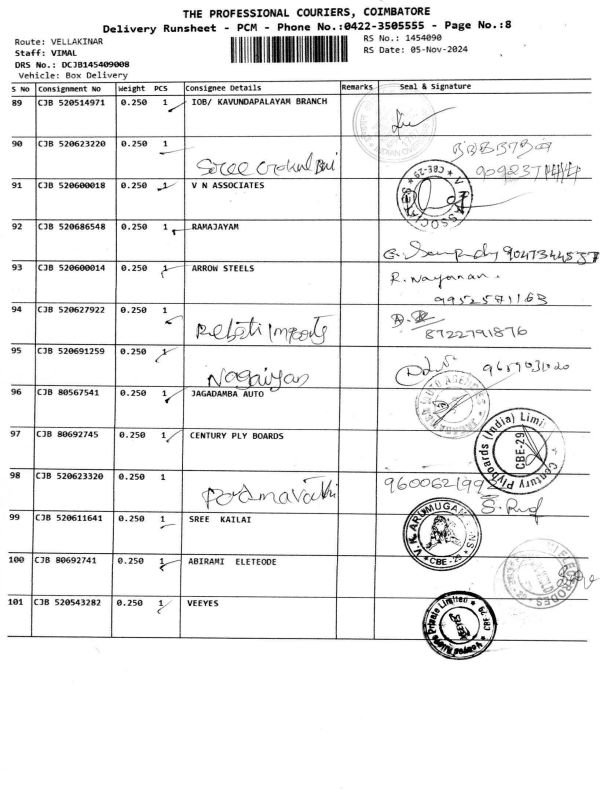 THE PROFESSIONAL COURIERS, COIMBATORE
Delivery Runsheet - PCM - Phone No.:0422-3505555 - Page No.:8
Route: VELLAKINAR
RS No.: 1454090
Staff: VIMAL
RS Date: 05-Nov-2024
DRS No.: DCJB145409008
Vehicle: Box Delivery
S No Consignment No Weight PCS Consignee Details Remarks Seal & Signature
89 CJB 520514971 0.250 1 IOB/ KAVUNDAPALAYAM BRANCH
90 CJB 520623220 0.250 1 Sree
91 CJB 520600018 0.250 1 V N ASSOCIATES
V N ASSOCIATES CBE-29
92 CJB 520686548 0.250 1 RAMAJAYAM
9047344557
93 CJB 520600014 0.250 1 ARROW STEELS
R. Nayanan.
9952571163
94 CJB 520627922 0.250 1 Rebati Imports
8722791876
95 CJB 520691259 0.250 1 Nagaiyan
96 CJB 80567541 0.250 1 JAGADAMBA AUTO
JAGADAMBA AUTO AGENCIES
97 CJB 80692745 0.250 1 CENTURY PLY BOARDS
Century Plyboards (India) Limi
CBE-29
98 CJB 520623320 0.250 1 Padmavathi
99 CJB 520611641 0.250 1 SREE KAILAI
V.K. ARUMUGAM
CBE - 29
100 CJB 80692741 0.250 1 ABIRAMI ELETEODE
ELECTRODES
101 CJB 520543282 0.250 1 VEEYES
Private Limited
VEEYES